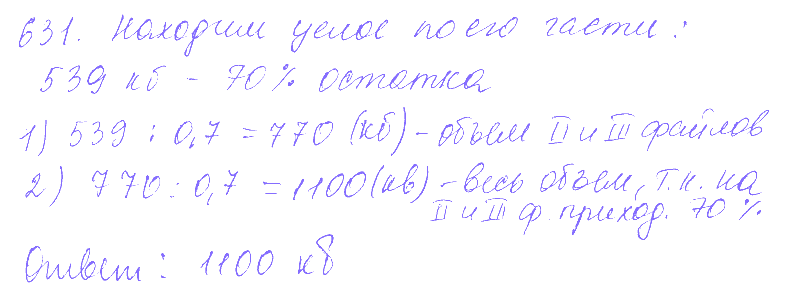 631. Находим целое по его части:
539 кб - 70% остатка
1) 539 : 0,7 = 770 (кб) - объем II и III файлов
2) 770 : 0,7 = 1100 (кв) - весь объем, т.к. на
II и III ф. приход. 70%
Ответ: 1100 кб